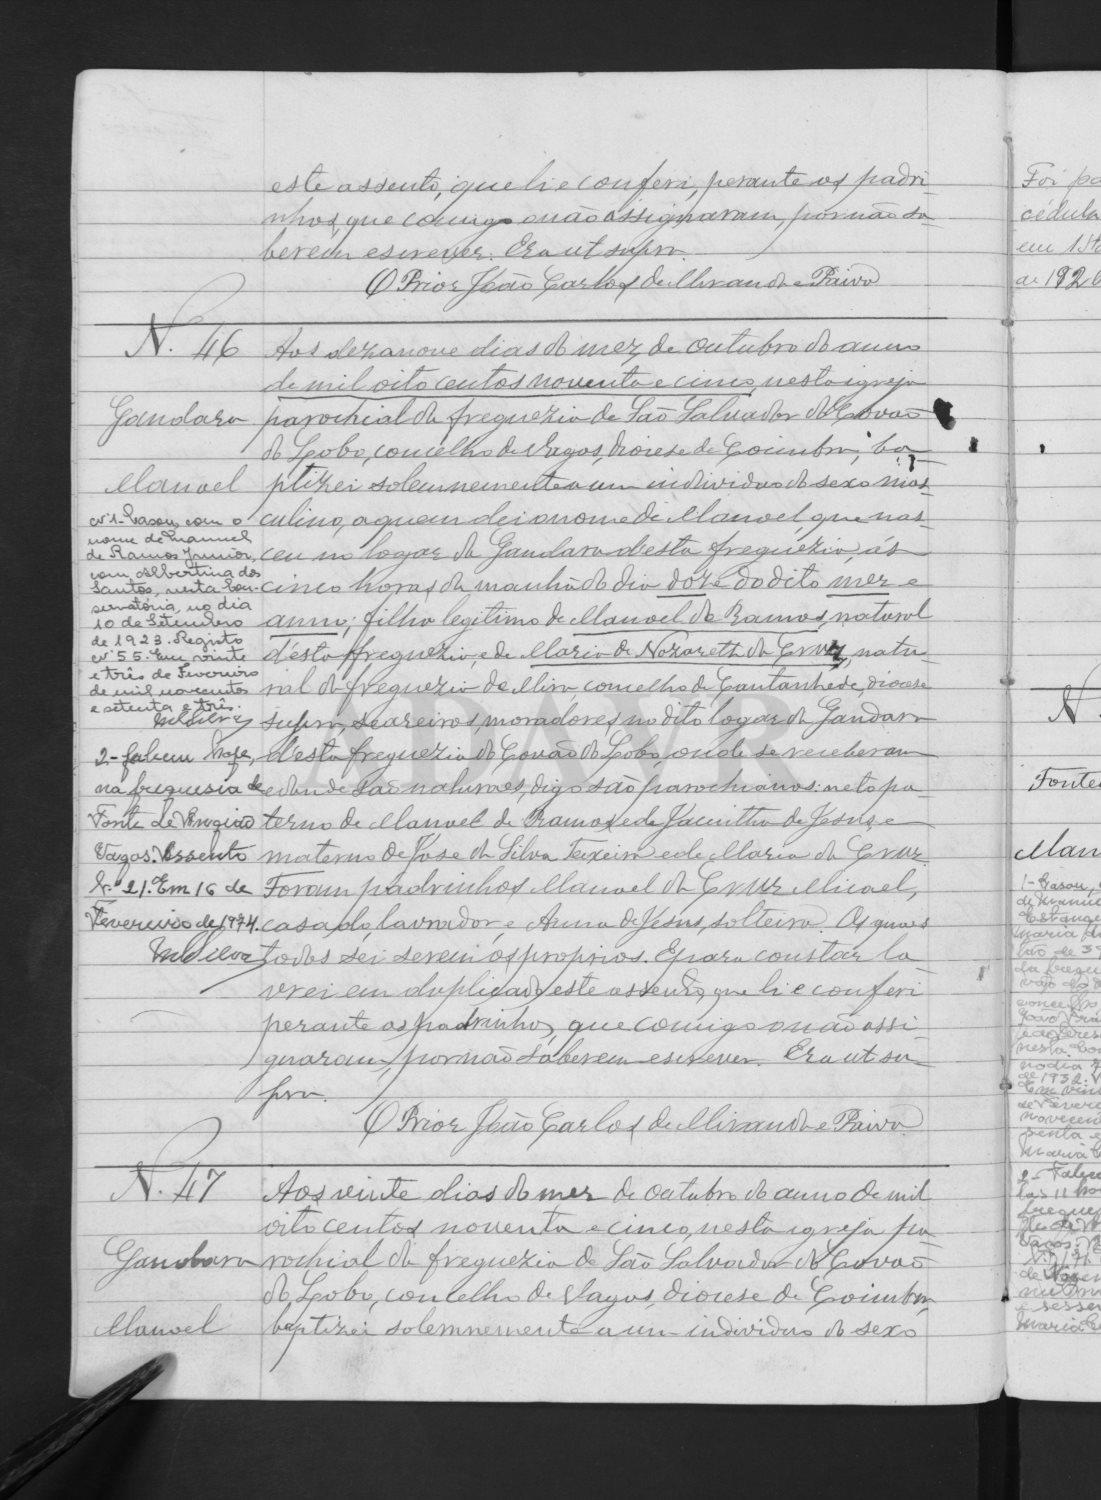 este assento, que li e conferi, perante os padri-
nhos, que comigo o não assignaram, por não sa
berem escrever. Era ut supra.
O Prior João Carlos de Miranda e Paiva
N. 46
Gandara
Manoel
Aos dezanove dias do mez de Outubro do anno
de mil oito centos noventa e cinco, nesta igreja
parochial da freguezia de São Salvador do Covão
do Lobo, concelho de Vagos, diocese de Coimbra, ba
ptizei solemnemente a um individuo do sexo mas-
culino, a quem dei o nome de Manoel, que nas-
ceu no logar da Gandara d'esta freguezia, ás
cinco horas da manhã do dia doze do dito mez e
anno; filho legitimo de Manoel de Ramos, natural
d'esta freguezia, e de Maria de Nazareth da Cruz, natu-
ral da freguezia de Mira, concelho de Cantanhede, diocese
supra, seareiros, moradores, no dito logar da Gandara
d'esta freguezia do Covão do Lobo, onde se receberam
e donde são naturaes, digo são parochianos: neto pa-
terno de Manoel de Ramos e de Jacintha de Jesus, e
materno de José da Silva Teixeira e de Maria da Cruz.
Foram padrinhos Manoel da Cruz Micael,
casado, lavrador, e Anna de Jesus, solteira. Os quaes
todos sei serem os proprios. E para constar la
vrei em duplicado este assento, que li e conferi
perante os padrinhos, que comigo o não assi
gnaram, por não saberem escrever. Era ut su-
pra.
O Prior João Carlos de Miranda e Paiva
nº 1 - Casou, com o
nome de Manuel
de Ramos Junior,
com Albertina dos
Santos, nesta Con-
servatória, no dia
10 de Setembro
de 1923. Registo
nº 55. Em vinte
e três de Fevereiro
de mil novecentos
e setenta e três.
MSilva
2 - faleceu hoje,
na freguesia de
Fonte de Angião
Vagos. Assento
N.º 21. Em 16 de
Fevereiro de 1974.
MSilva
N. 47
Gandara
Manoel
Aos vinte dias do mez de Outubro do anno de mil
oito centos noventa e cinco, nesta igreja pa-
rochial da freguezia de São Salvador do Covão
do Lobo, concelho de Vagos, diocese de Coimbra,
baptizei solemnemente a um individuo do sexo
Foi pa
cédula
em 1 de
de 1926
N.
Fonte
Man
1 - Casou,
de Manuel
Maria
de 1932.
2 - Fale
fregue
Vagos.
ADAVR